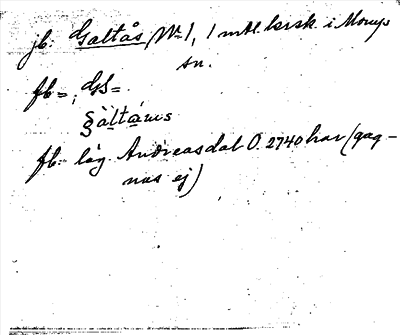 jb: Galtås No 1, 1 mtl. kersk. i Morups
sn.
fb=; GS=.
gàltáɯs
fb: låg. Andreasdal O. 2740 har (gag-
nas ej)